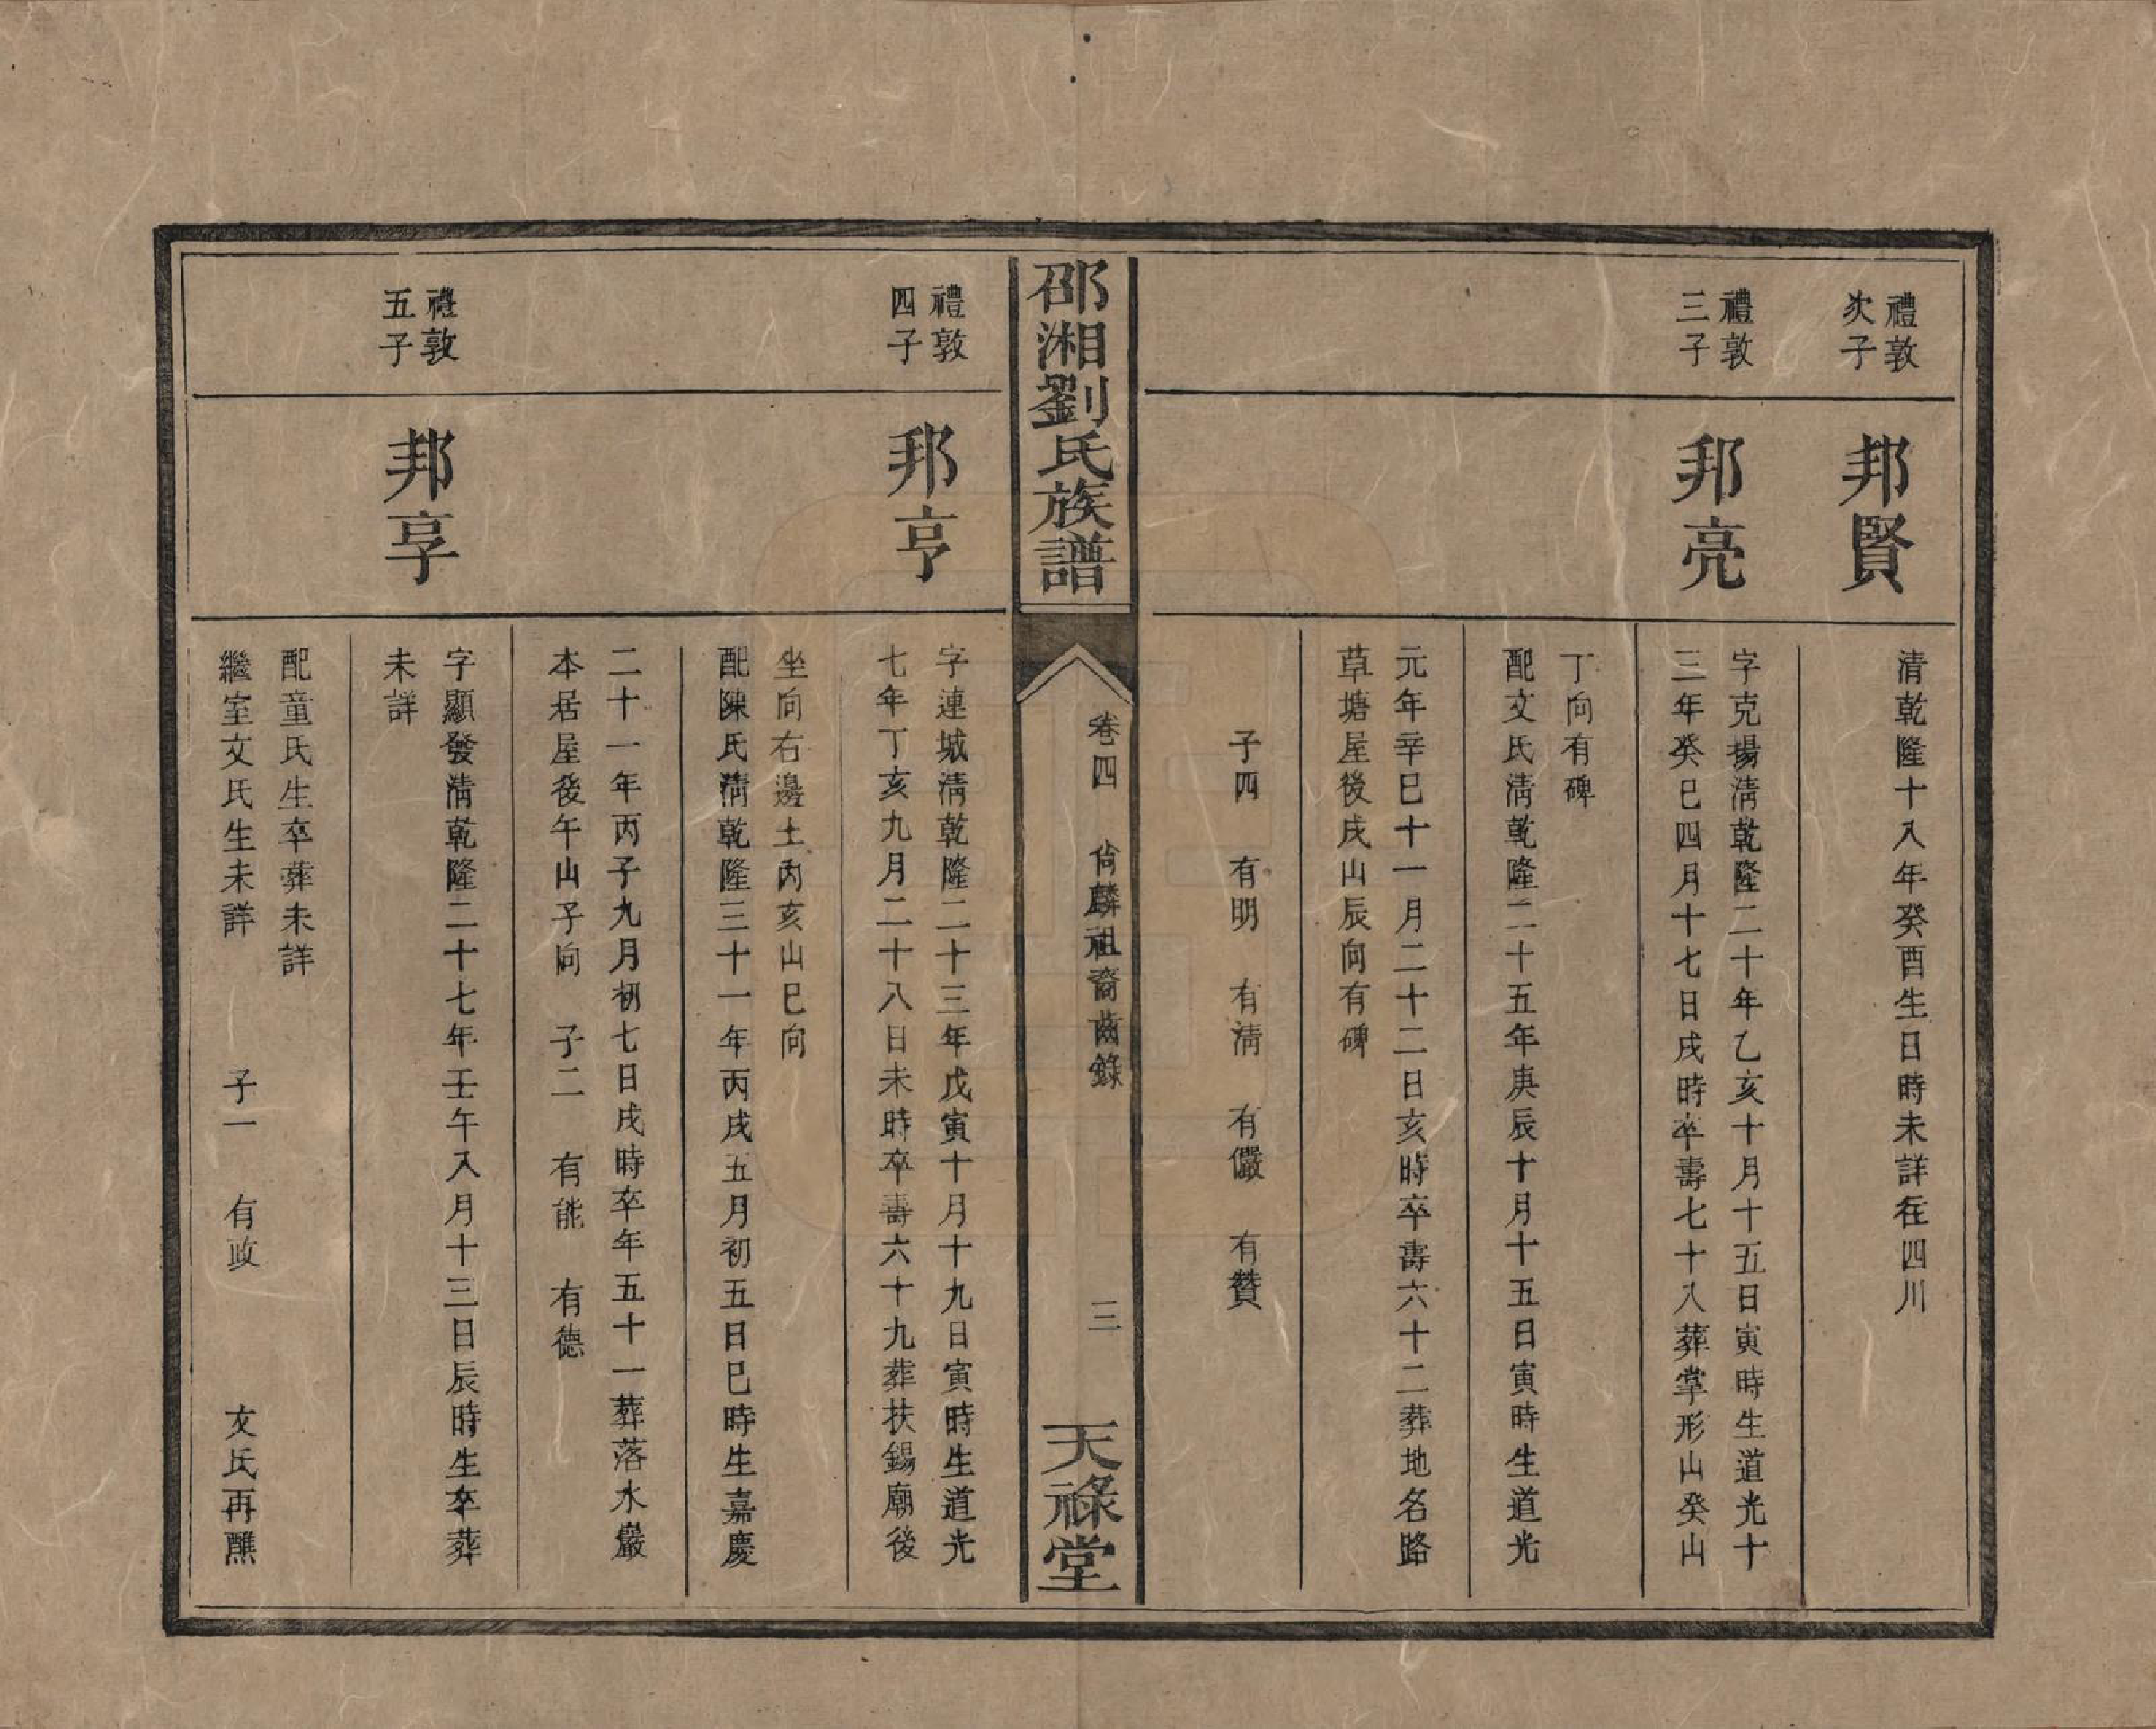 禮敦
次子
邦賢
清乾隆十八年癸酉生日時未詳在四川
禮敦
三子
邦亮
字克揚淸乾隆二十年乙亥十月十五日寅時生道光十
三年癸巳四月十七日戌時卒壽七十八葬掌形山癸山
丁向有碑
配文氏淸乾隆二十五年庚辰十月十五日寅時生道光
元年辛巳十一月二十二日亥時卒壽六十二葬地名路
草塘屋後戌山辰向有碑
子四 有明 有淸 有儼 有贊
邵湘劉氏族譜
卷四 尙麟祖裔齒錄
三
天祿堂
禮敦
四子
邦亨
字連城淸乾隆二十三年戊寅十月十九日寅時生道光
七年丁亥九月二十八日未時卒壽六十九葬扶錫廟後
坐向右邊土內亥山巳向
配陳氏淸乾隆三十一年丙戌五月初五日巳時生嘉慶
二十一年丙子九月初七日戌時卒年五十一葬落水巖
本居屋後午山子向 子二 有能 有德
禮敦
五子
邦享
字顯發淸乾隆二十七年壬午八月十三日辰時生卒葬
未詳
配童氏生卒葬未詳
繼室文氏生未詳 子一 有政 文氏再醮